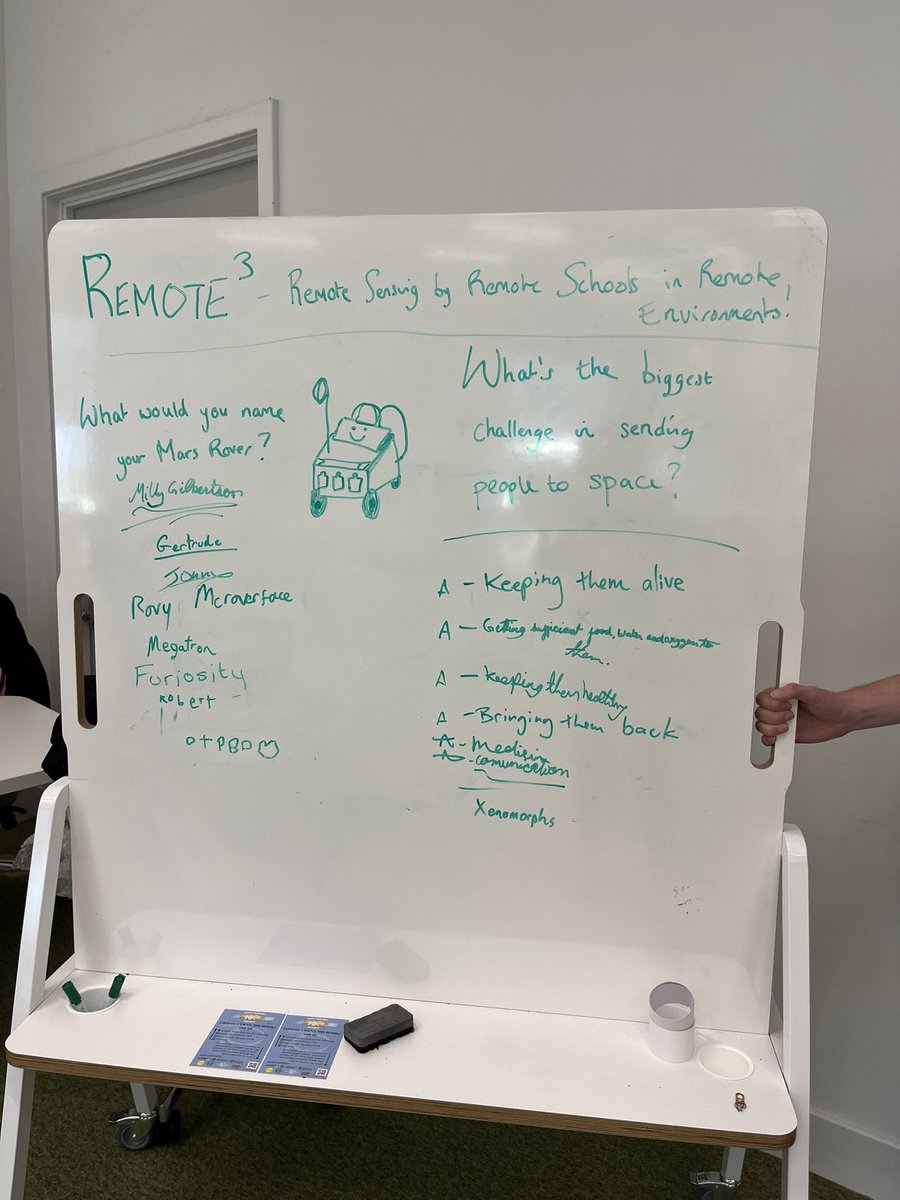 REMOTE³ - Remote Sensing by Remote Schools in Remote
Environments!
What would you name
your Mars Rover?
Milly Gilbertson
Gertrude
Rovy Mcroverface
Megatron
Furiosity
Robert
What's the biggest
challenge in sending
people to space?
A - Keeping them alive
A - Getting sufficient food, water and oxygen to
them.
A - keeping them healthy
A - Bringing them back
A - Medising
A - comunication
Xenomorphs